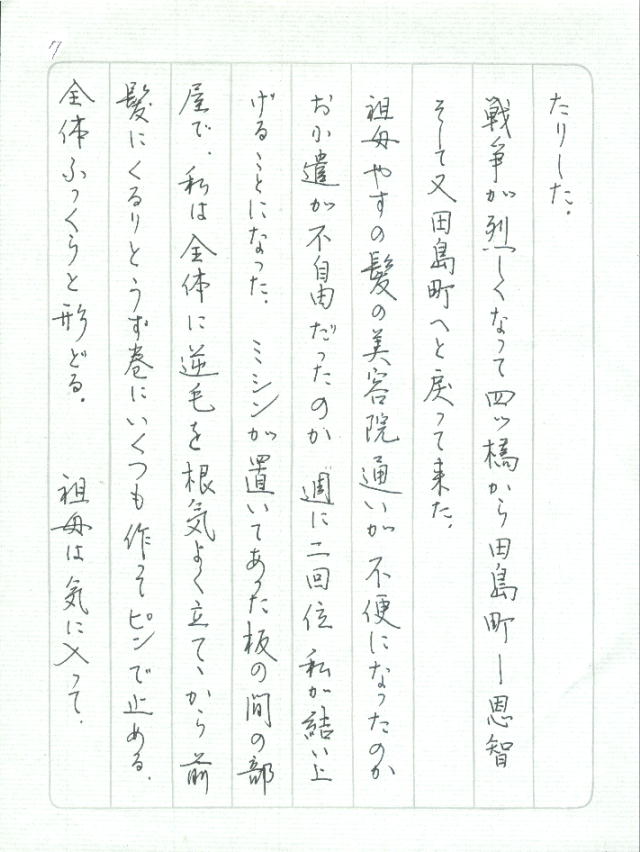 7
たりした。
戦争が烈しくなって四ツ橋から田島町ー恩智
そして又田島町へと戻って来た。
祖母やすの髪の美容院通いが不便になったのか
お小遣が不自由だったのか 週に二回位 私が結い上
げることになった。 ミシンが置いてあった板の間の部
屋で、私は全体に逆毛を根気よく立てゝから前
髪にくるりとうず巻にいくつも作ってピンで止める。
全体ふっくらと形どる。 祖母は気に入って、